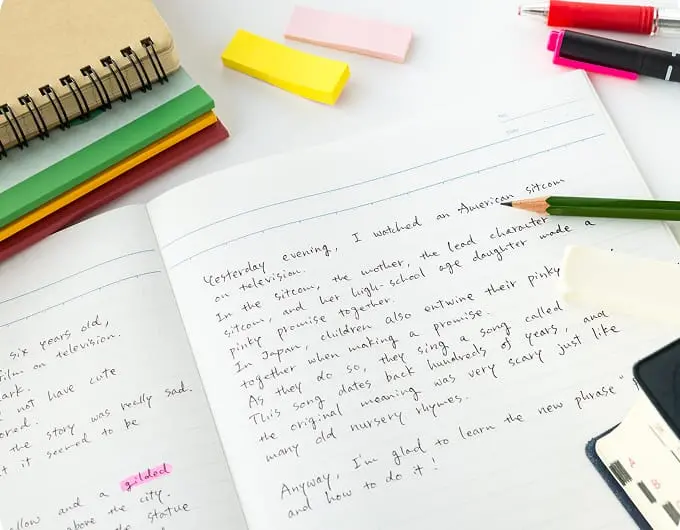 six years old,
film on television.
ark.
not have cute
ored.
the story was really sad.
it seemed to be
llow and a gilded
above the city.
the statue
Yesterday evening, I watched an American sitcom
on television.
In the sitcom, the mother, the lead character
sitcom, and her high-school age daughter made a
pinky promise together.
In Japan, children also entwine their pinky
together when making a promise.
As they do so, they sing a song called
This song dates back hundreds of years, and
the original meaning was very scary just like
many old nursery rhymes.
Anyway, I'm glad to learn the new phrase "
and how to do it!
A
B